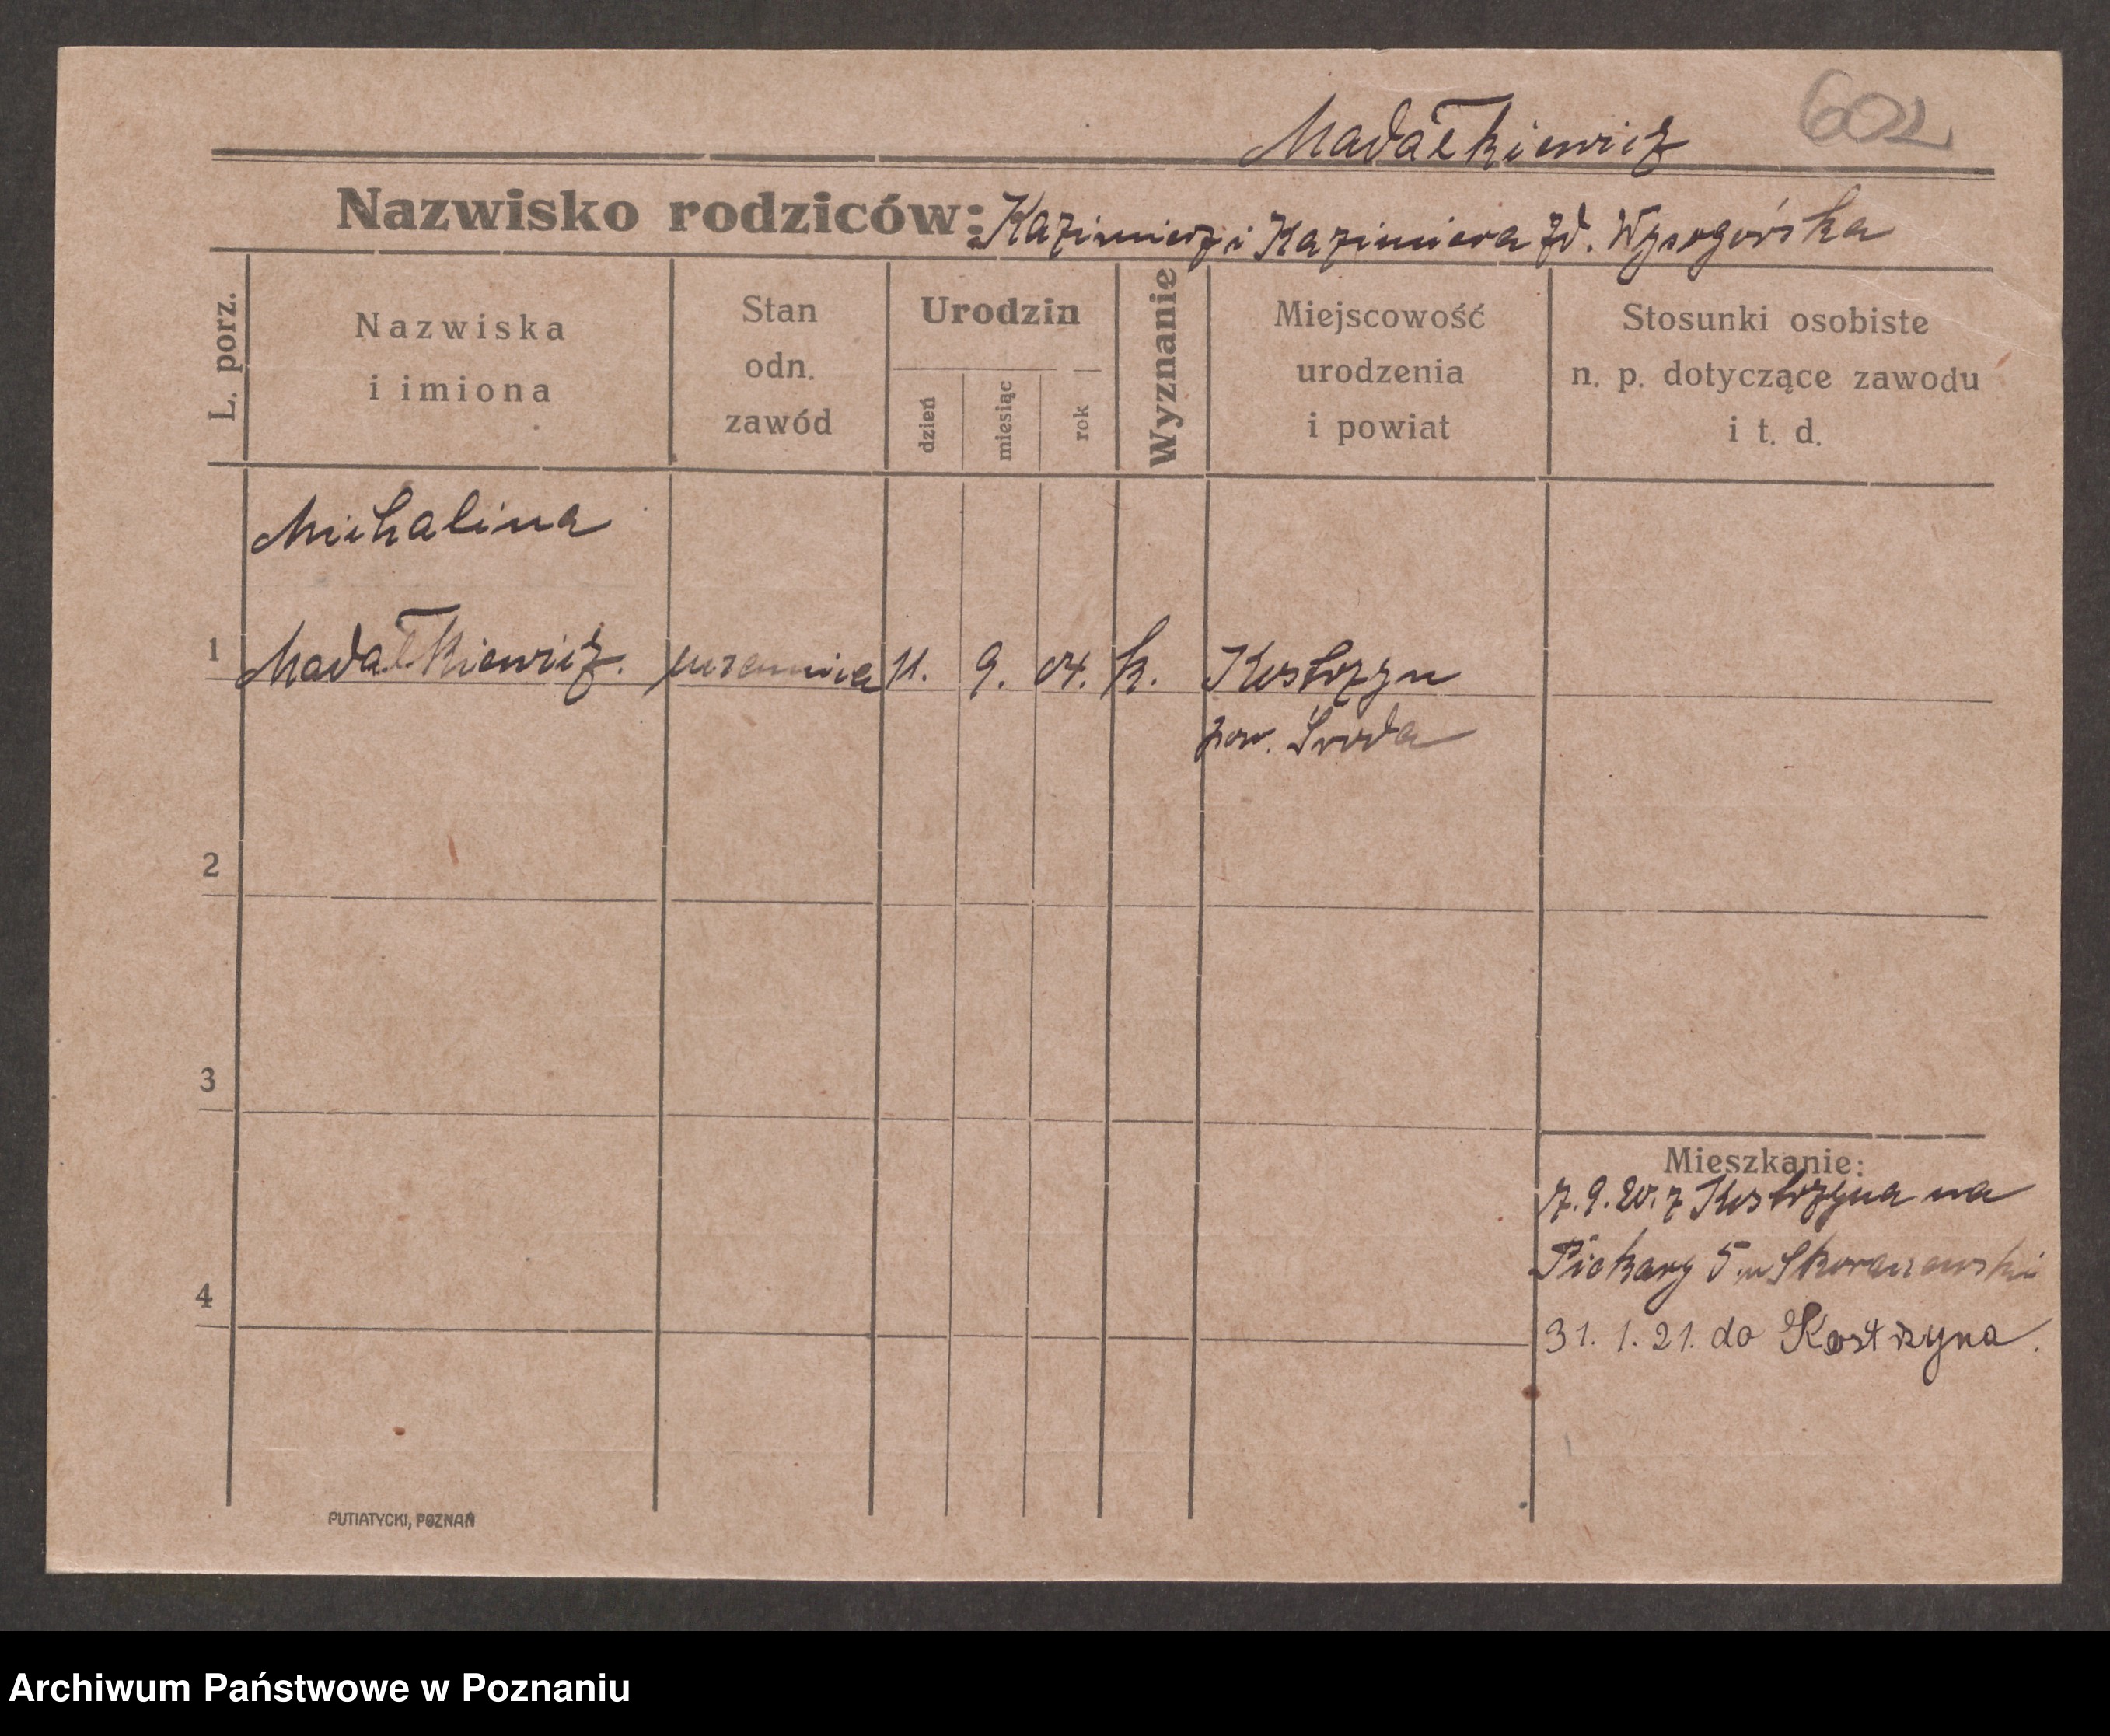 602
Madałkiewicz
Nazwisko rodziców: Kazimierz i Kazimiera zd. Wysogórska
L. porz.
Nazwiska
i imiona
Stan
odn.
zawód
Urodzin
dzień
miesiąc
rok
Wyznanie
Miejscowość
urodzenia
i powiat
Stosunki osobiste
n. p. dotyczące zawodu
i t. d.
Michalina
1 Madałkiewicz. uczennica 11. 9. 04. k. Kostrzyn
pow. Środa
2
3
4
Mieszkanie:
7.9.20. z Kostrzyna na
Piekary 5
31. 1. 21. do Kostrzyna.
PUTIATYCKI, POZNAŃ
Archiwum Państwowe w Poznaniu